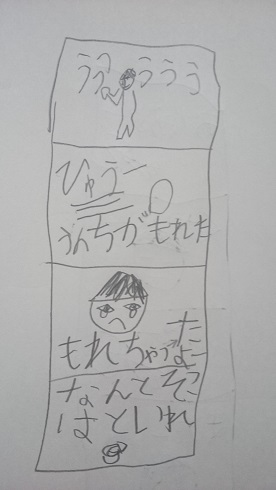 うっっううう
ひゅうー
うんちがもれた
もれちゃったよー
なんとそこ
はといれ